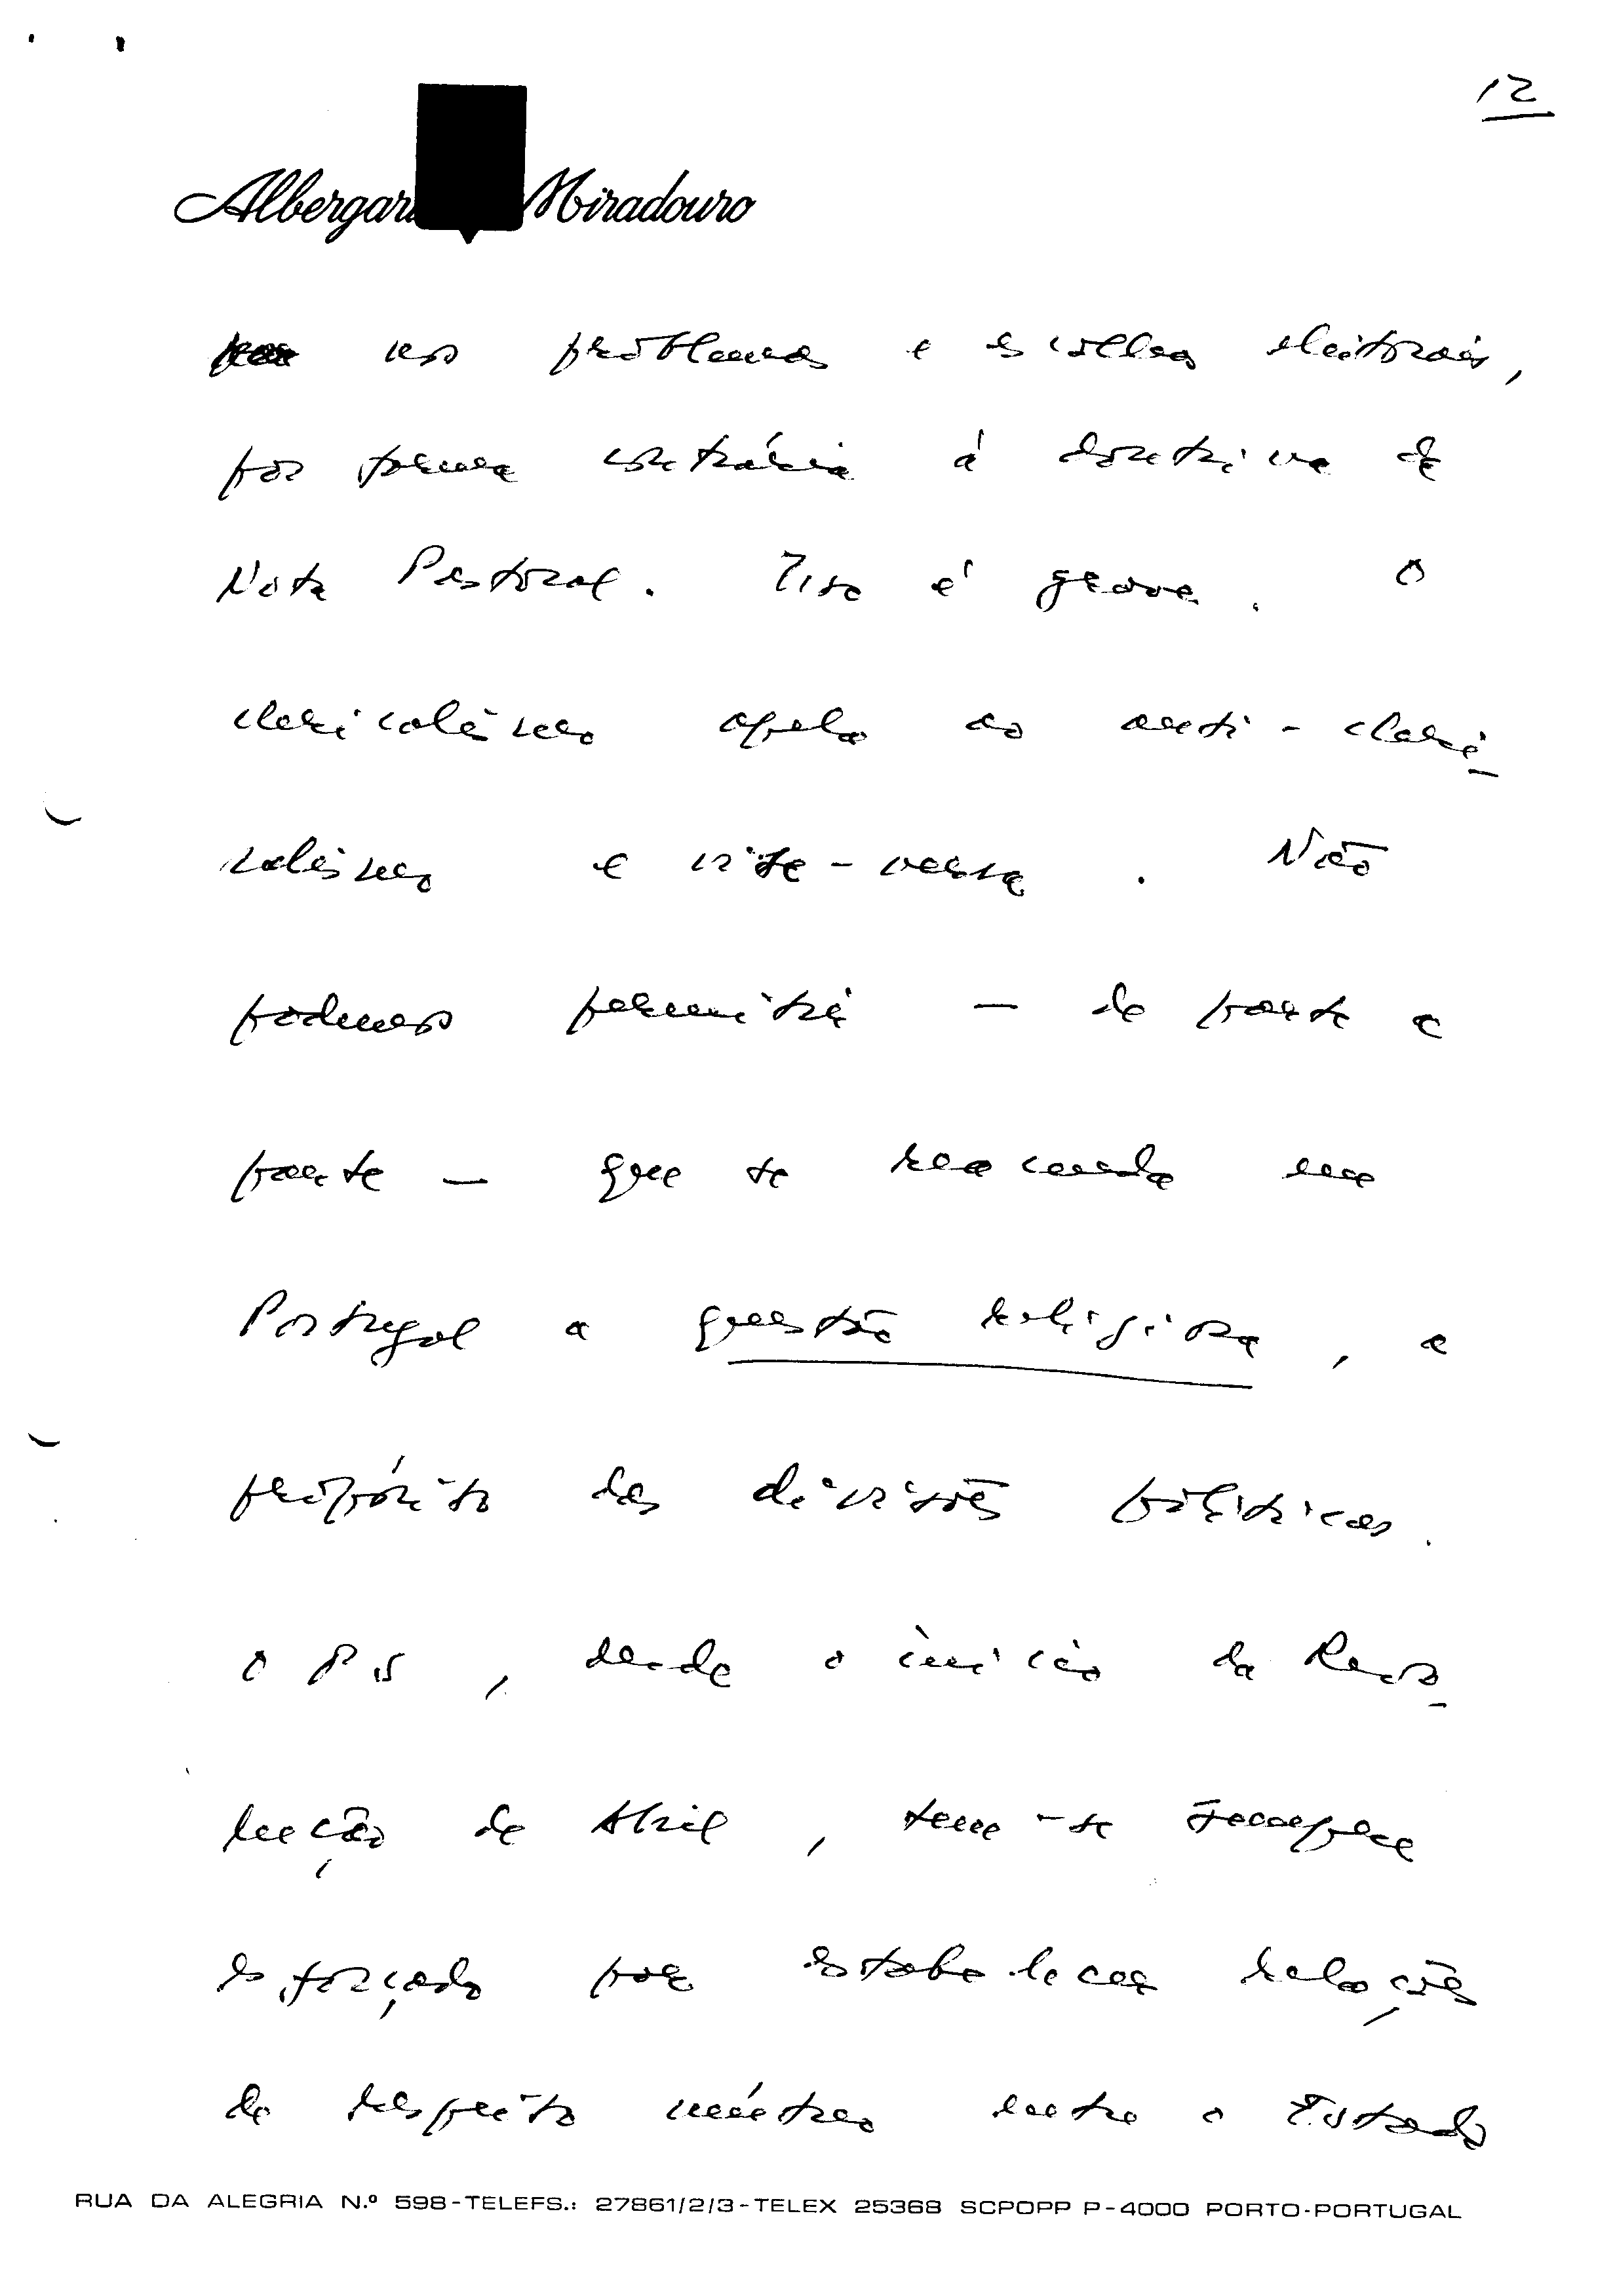 12
Albergaria Miradouro
nos problemas e escolhas eleitorais,
por forma contrária à doutrina da
Nota Pastoral. Isso é grave. O
clericalismo apela ao anti-cleri-
calismo e vice-versa. Não
podemos permitir - de parte a
parte - que se reacenda em
Portugal a questão religiosa, a
propósito das divisões políticas.
O PS, desde o início da Revo-
lução de Abril, tem-se sempre
esforçado por estabelecer relações
de respeito mútuo entre o Estado
RUA DA ALEGRIA N.º 598-TELEFS.: 27861/2/3-TELEX 25368 SCPOPP P-4000 PORTO-PORTUGAL